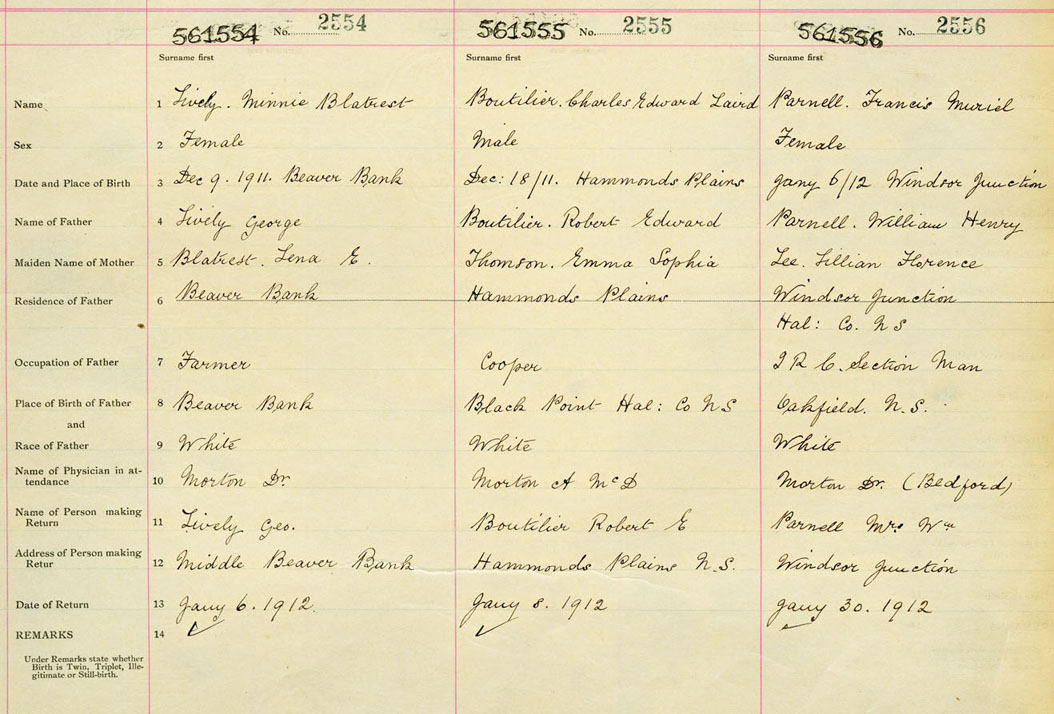 561554 No. 2554 561555 No. 2555 561556 No. 2556
Surname first Surname first Surname first
Name 1 Lively. Minnie Blatrest Boutilier. Charles Edward Laird Parnell. Francis Muriel
Sex 2 Female Male Female
Date and Place of Birth 3 Dec 9. 1911. Beaver Bank Dec: 18/11. Hammonds Plains Jany 6/12 Windsor Junction
Name of Father 4 Lively George Boutilier. Robert Edward Parnell. William Henry
Maiden Name of Mother 5 Blatrest. Lena E. Thomson. Emma Sophia Lee. Lillian Florence
Residence of Father 6 Beaver Bank Hammonds Plains Windsor Junction
Hal: Co. N S
Occupation of Father 7 Farmer Cooper I R C. Section Man
Place of Birth of Father 8 Beaver Bank Black Point Hal: Co N S Oakfield. N.S.
and
Race of Father 9 White White White
Name of Physician in at-
tendance 10 Morton Dr. Morton A McD Morton Dr. (Bedford)
Name of Person making
Return 11 Lively Geo. Boutilier Robert E Parnell Mrs Wm
Address of Person making
Retur 12 Middle Beaver Bank Hammonds Plains N.S. Windsor Junction
Date of Return 13 Jany 6. 1912. Jany 8. 1912 Jany 30. 1912
REMARKS 14 ✓ ✓ ✓
Under Remarks state whether
Birth is Twin, Triplet, Ille-
gitimate or Still-birth.